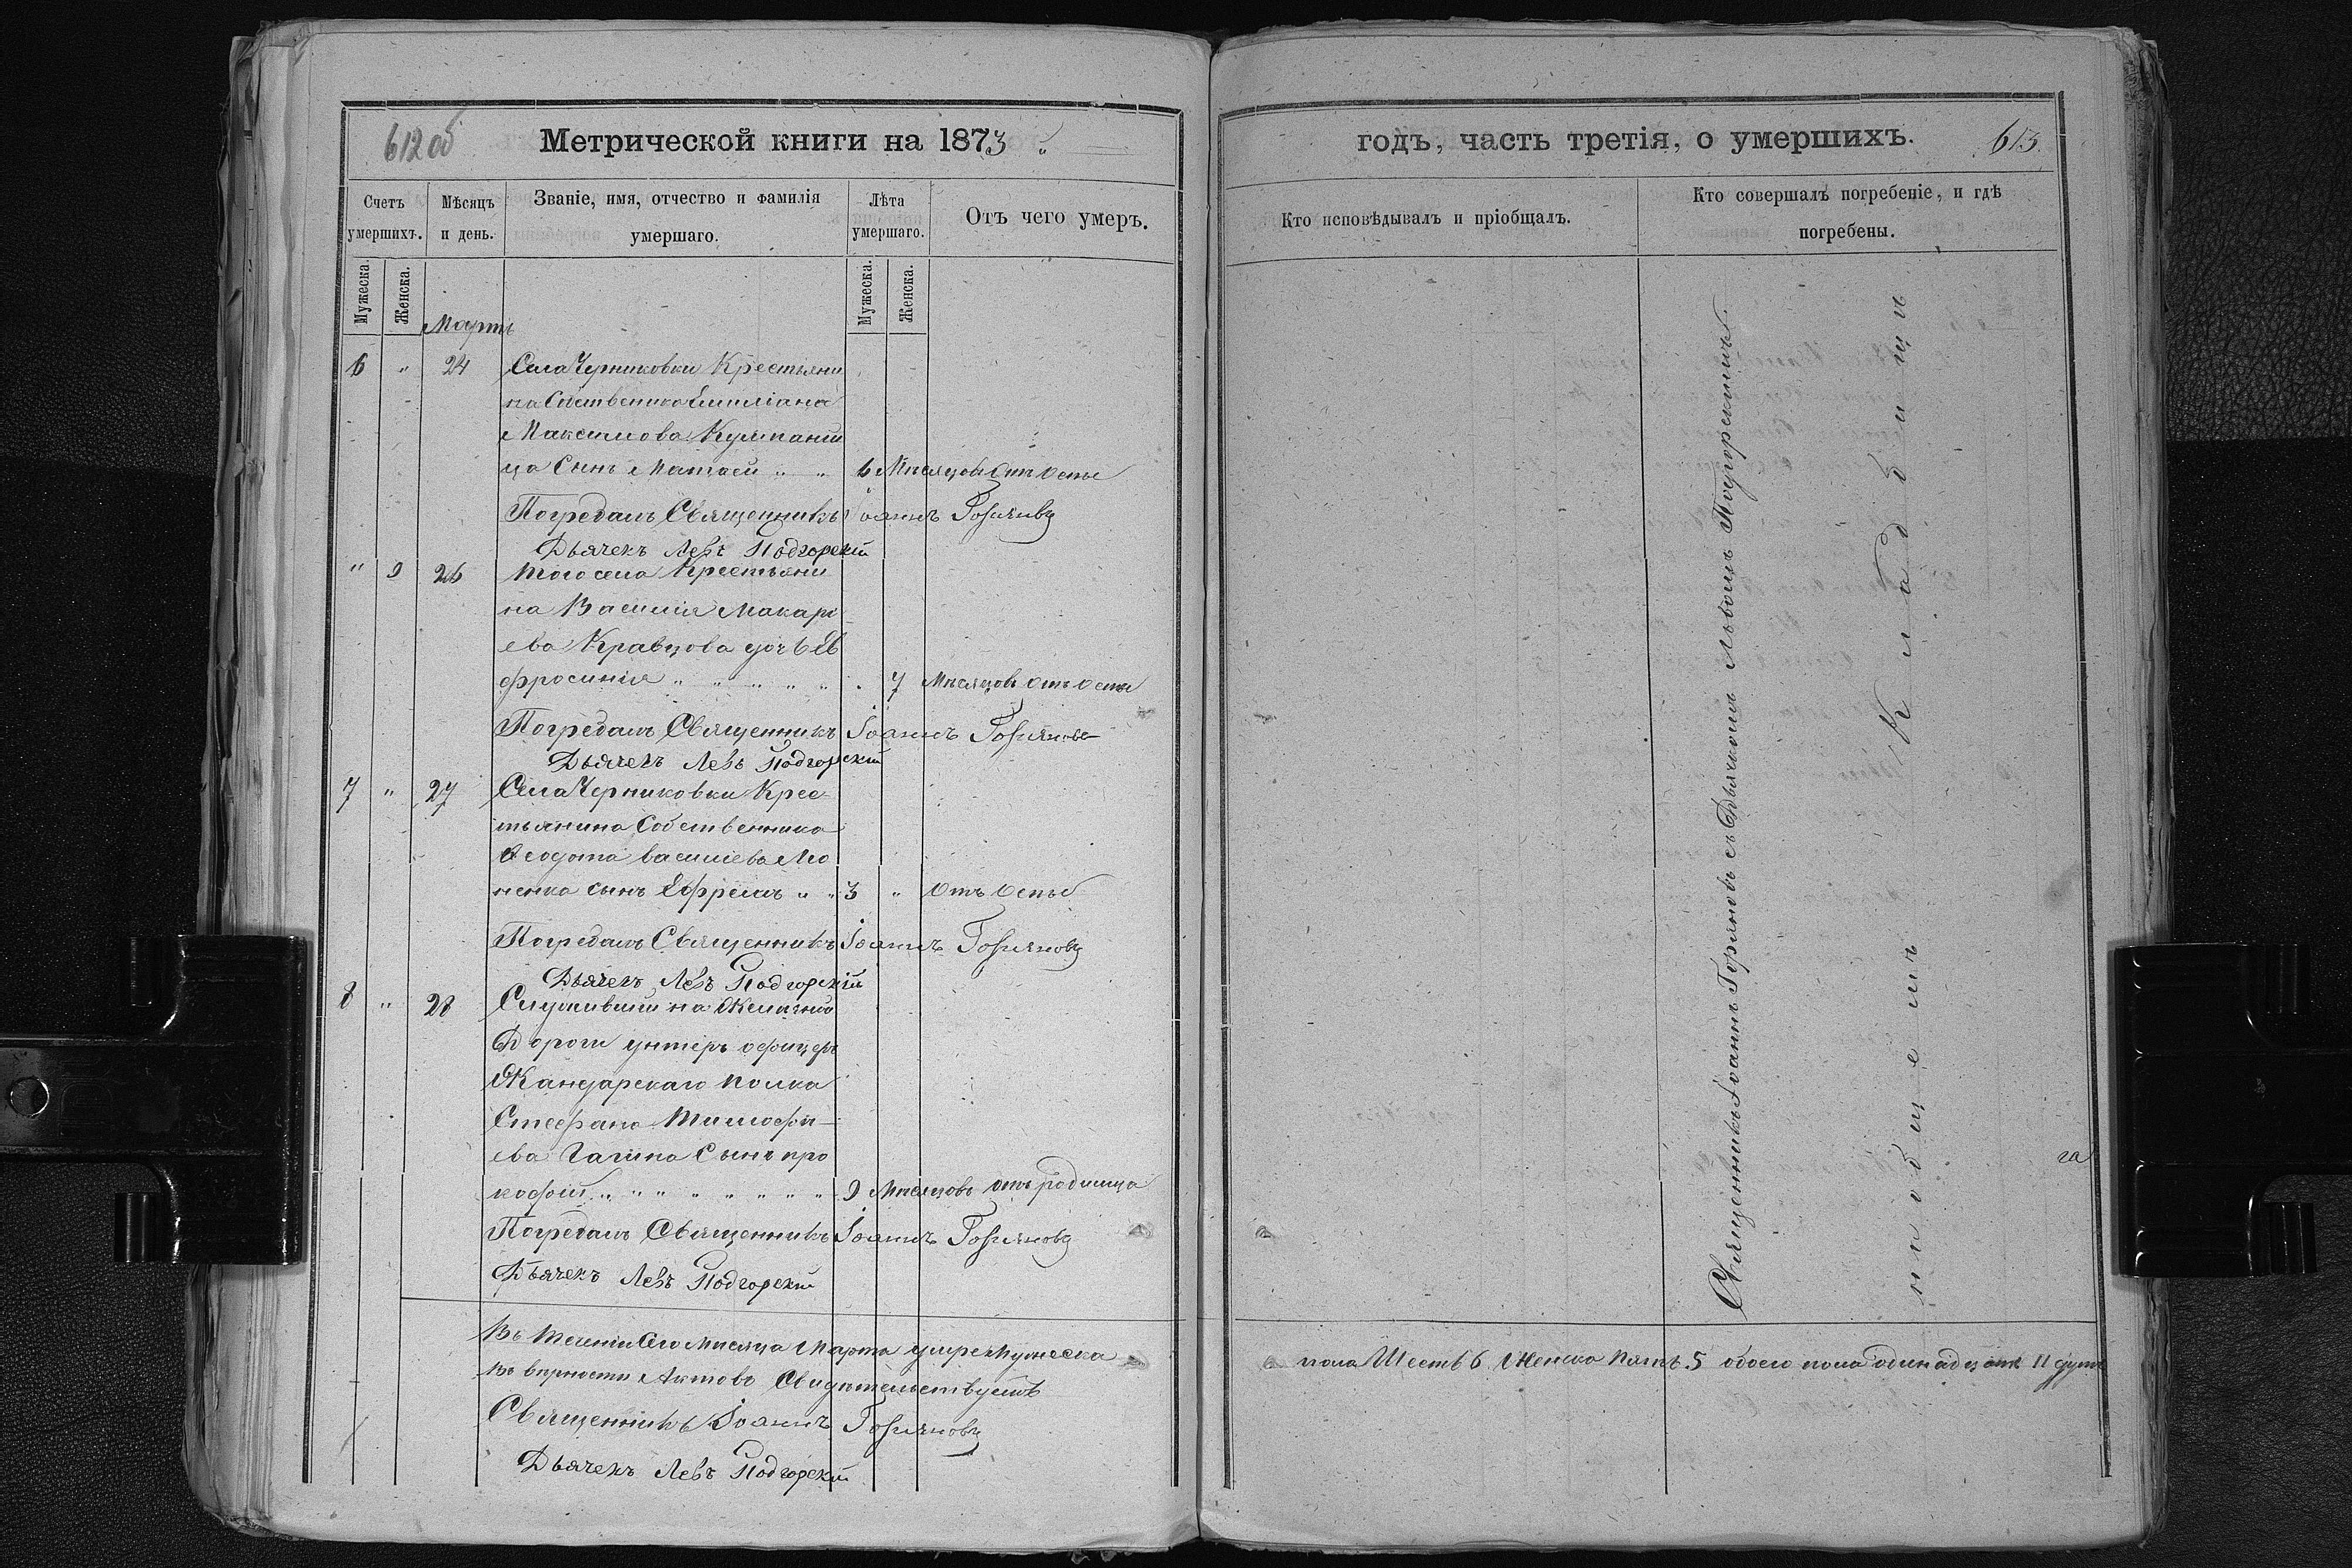 612 об
Метрической книги на 1873
Счетъ умершихъ.
Мѣсяцъ и день.
Званіе, имя, отчество и фамилія умершаго.
Лѣта умершаго.
Отъ чего умеръ.
Мужеска. Женска.
Мужеска. Женска.
Мартъ
6 " 24 Села Черниковки Крестьяни
на Собственика Емиліана
Максимова
ца Сынъ Матвей " " 6 Мѣсяцовъ Отъ Оспы
Погребалъ Священникъ Іоаннъ Горяновъ
Дьячекъ Левъ Подгорскій
" 9 26 Того села Крестьяни
на Василія Макарі
ева Кравцова дочь Ев
фросинія " " " " " . 7 Мѣсяцовъ Отъ Оспы
Погребалъ Священникъ Іоаннъ Горяновъ
Дьячекъ Левъ Подгорскій
7 " 27 Села Черниковки Крес
тьянина Собственника
Ѳеодота Василіева
ненка сынъ Ефремъ " " 3 " Отъ Оспы
Погребалъ Священникъ Іоаннъ Горяновъ
Дьячекъ Левъ Подгорскій
8 " 28 Служившій на Желѣзной
Дороги унтеръ офицеръ
Жандарскаго полка
Стефана Тимофѣ
ева Гагина Сынъ про
кофій " " " " " " " " 9 Мѣсяцовъ отъ родимца
Погребалъ Священникъ Іоаннъ Горяновъ
Дьячекъ Левъ Подгорскій
Въ теченіи Сего Мѣсяца Марта умре Мужеска
Въ верности Актовъ Свидѣтельствуемъ
Священникъ Іоаннъ Горяновъ
Дьячекъ Левъ Подгорскій
годъ, часть третія, о умершихъ.
613
Кто исповѣдывалъ и пріобщалъ.
Кто совершалъ погребеніе, и гдѣ погребены.
Священникъ Іоаннъ Горяновъ съ Дьячкомъ Львомъ Подгорскимъ.
на общемъ Кладбищи
га
пола Шесть 6 Женска Пять 5 обоего пола одинадцать 11 душъ